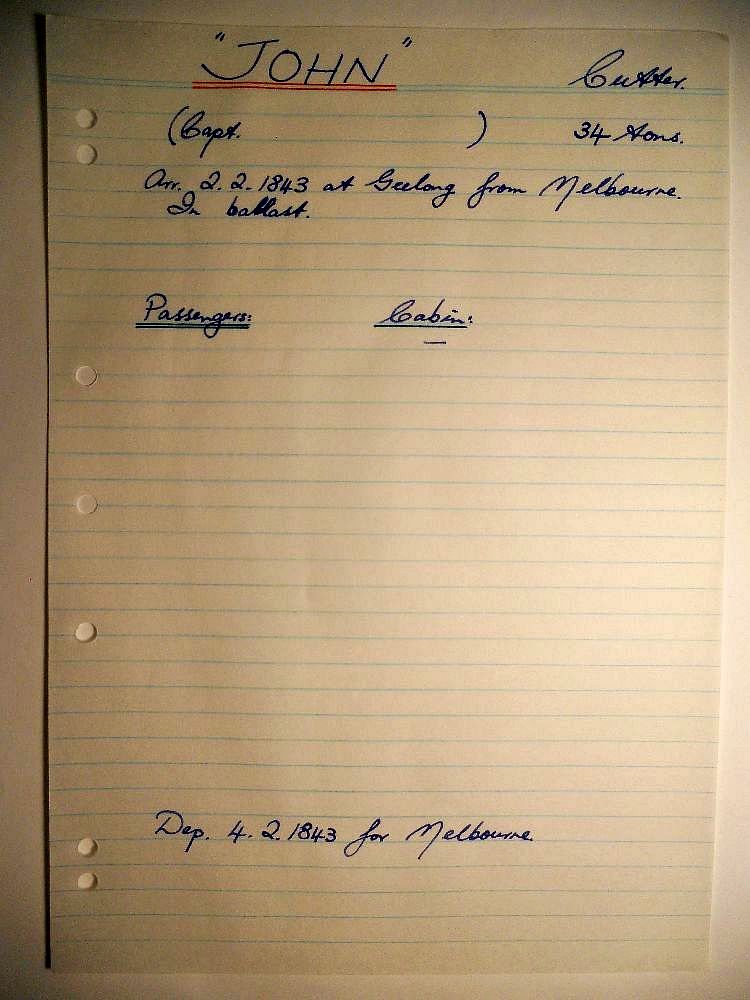 "JOHN" Cutter.
(Capt. ) 34 tons.
Arr. 2.2.1843 at Geelong from Melbourne.
In ballast.
Passengers: Cabin:
—
Dep. 4.2.1843 for Melbourne.